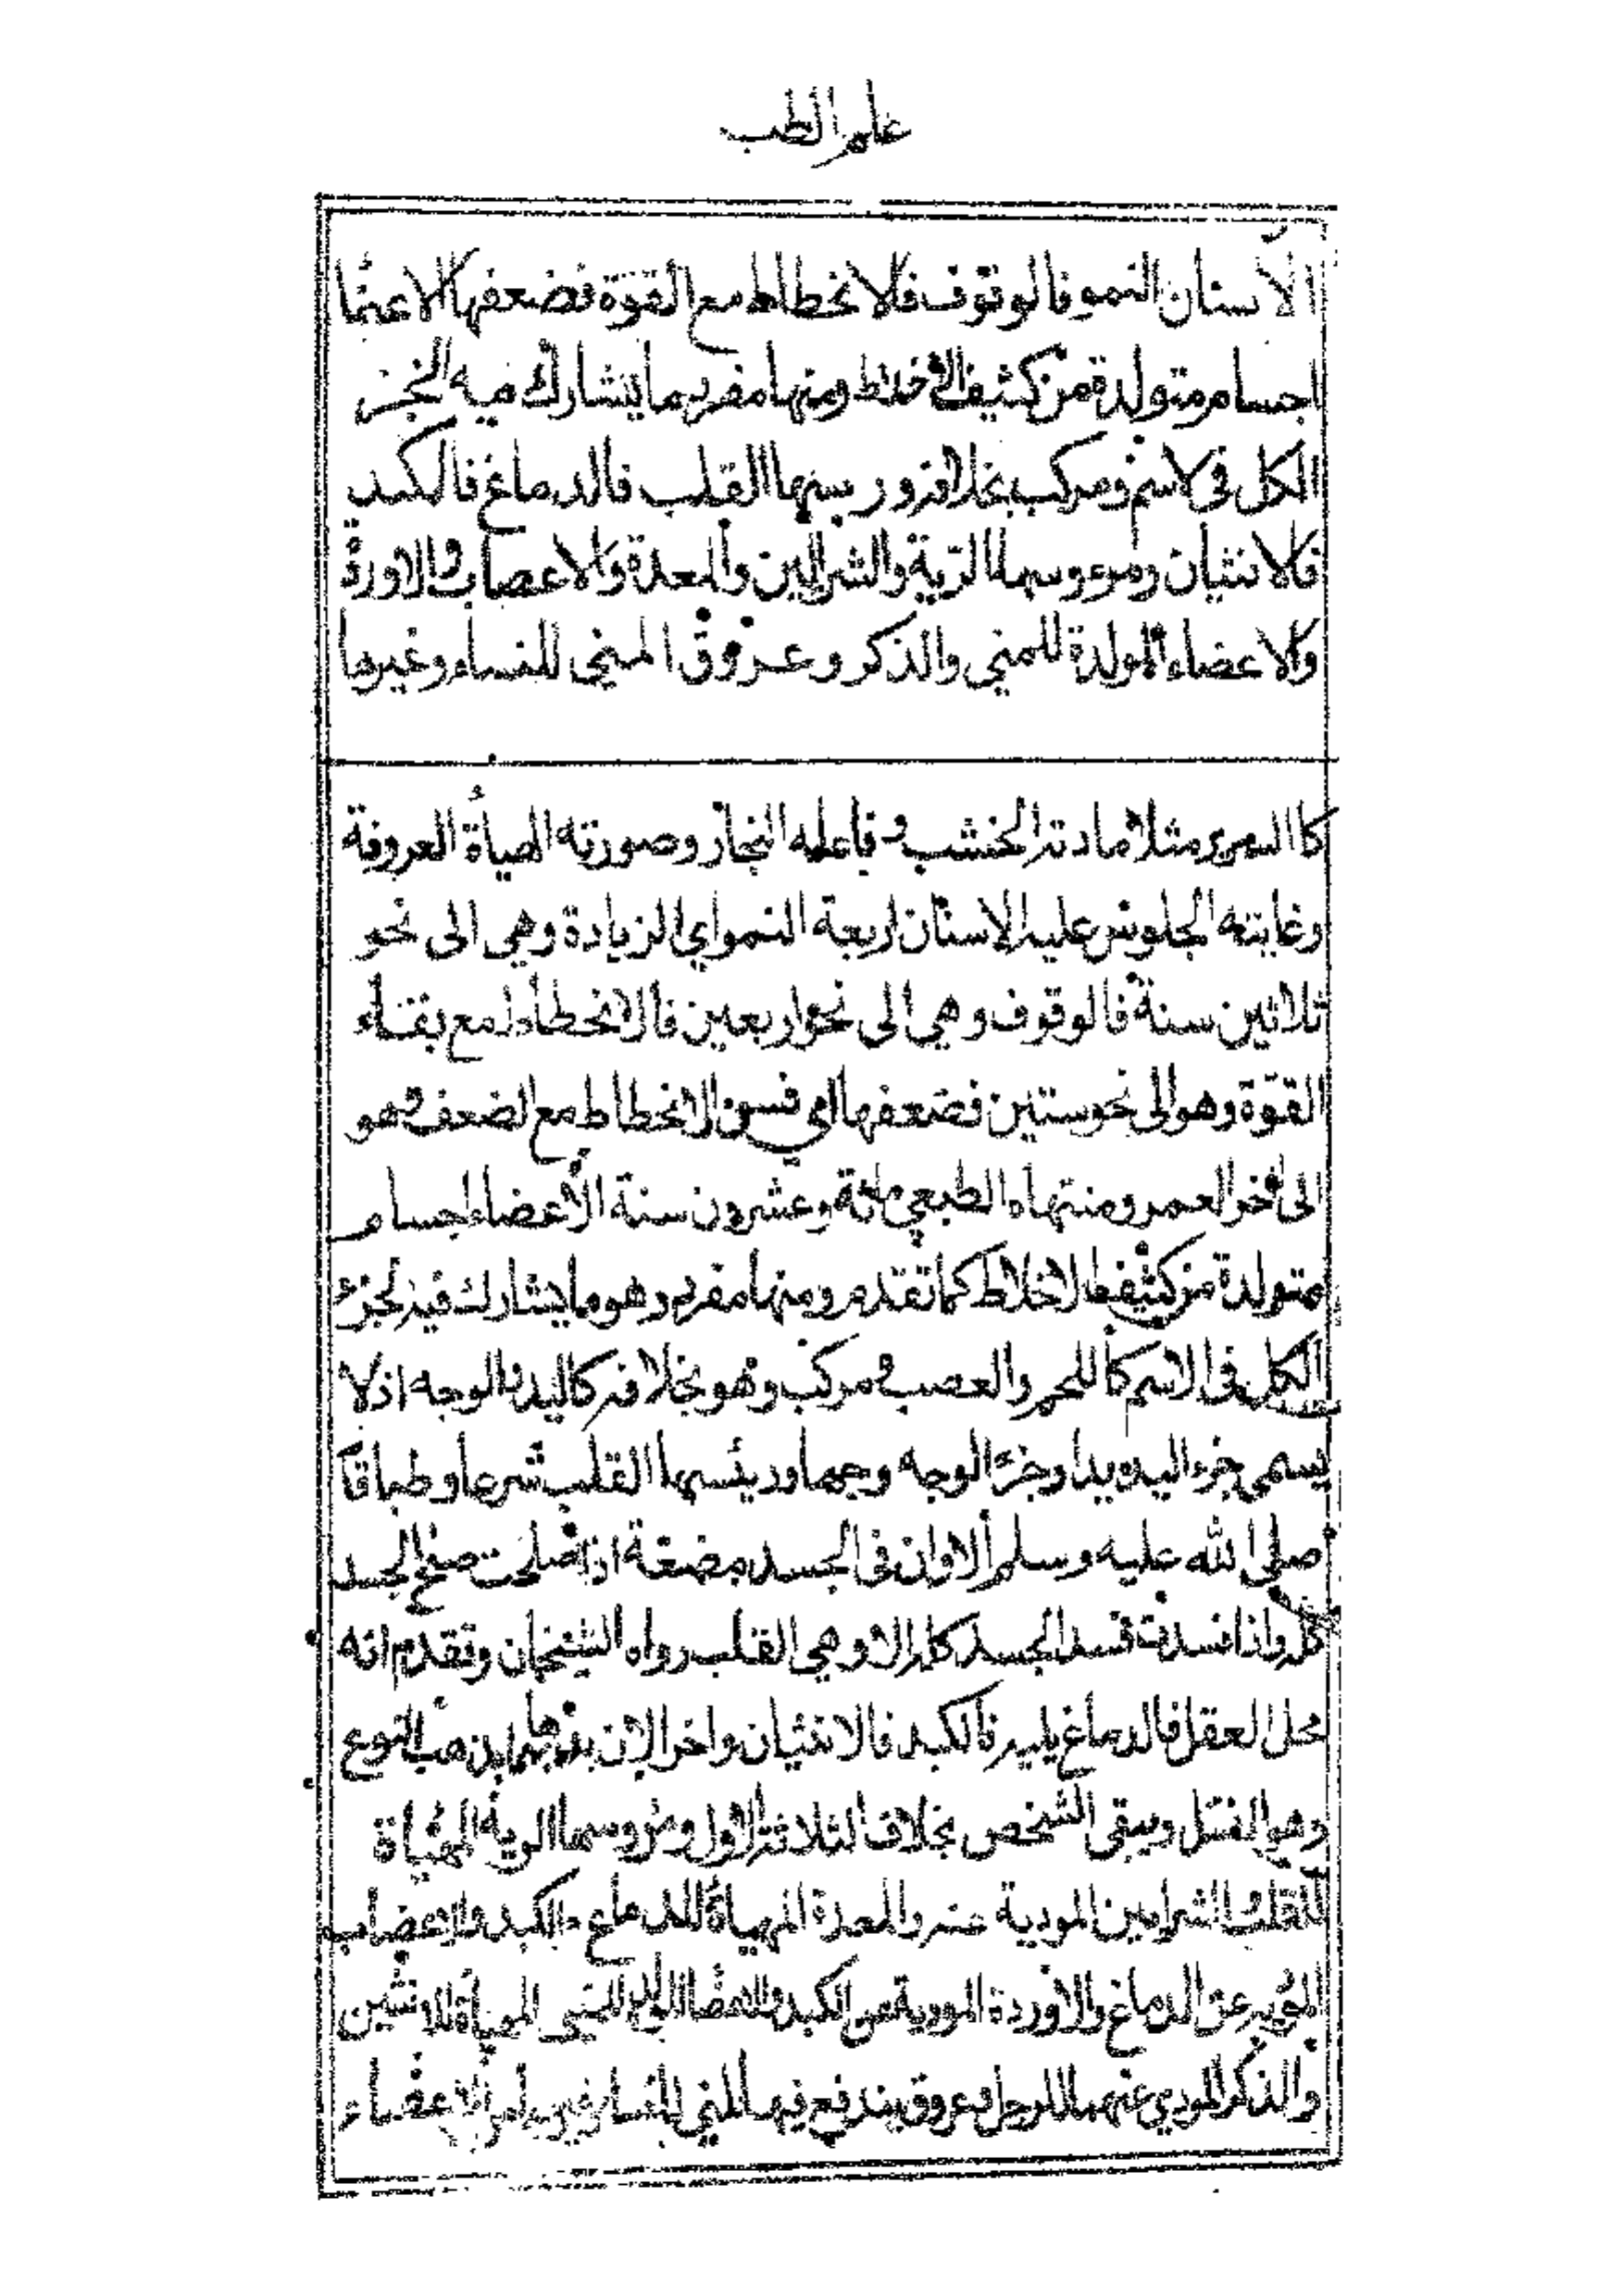 علم الطب
الاسنان النمو فالوقوف فالانحطاط مع القوة فضعفها الاعضا
اجسام متولدة من كثيف الاخلاط ومنها مفرد ما يتشارك فيه الجز
الكل فى الاسم ومركب بخلافه وريسها القلب فالدماغ فالكبد
فالانثيان ومرءوسها الرية والشرايين والمعدة والاعصاب والاوردة
والاعضاء المولدة للمني والذكر وعروق المني للنساء وغيرها
كاالسرير مثلا مادته الخشب وفاعله النجار وصورته الهيأة العروفة
وغايته الجلوس عليه الاسنان اربعة النمو اي الزيادة وهي الى نحو
ثلاثين سنة فالوقوف وهي الى نحو اربعين فالانحطاط مع بقاء
القوة وهو الى نحو ستين فضعفها اي فسن الانحطاط مع الضعف وهو
الى اخر العمر ومنتهاه الطبعي مائة وعشرون سنة الأعضاء اجسام
متولدة من كثيف الاخلاط كما تقدم ومنها مفرد وهو ما يشارك فيه الجزء
الكل فى الاسم كاللحم والعصب ومركب وهو بخلافه كاليد والوجه اذ لا
يسمى جزء اليد يدا وجزء الوجه وجها ورئيسها القلب شرعا وطبا قا
صلى الله عليه وسلم الا وان فى الجسد مضغة اذا صلحت صلح الجسد
كله واذا فسدت فسد الجسد كله الا وهي القلب رواه الشيخان وتقدم انه
محل العقل فالدماغ يليه فالكبد فالانثيان واخرا لان بذهابهما يذهب النوع
وهو النسل ويبقى الشخص بخلاف الثلاثة الاول ومرؤسها الرية المهيأة
للقلب والشرايين المودية عنه والمعدة المهيأة للدماغ والكبد والاعصاب
المؤدية عن الدماغ والاوردة المودية عن الكبد والاعضا المولدة للمني المهيأة للانثيين
والذكر المودي عنهما للرجل وعروق يندفع فيها المني للنسا وغيره الاعضاء